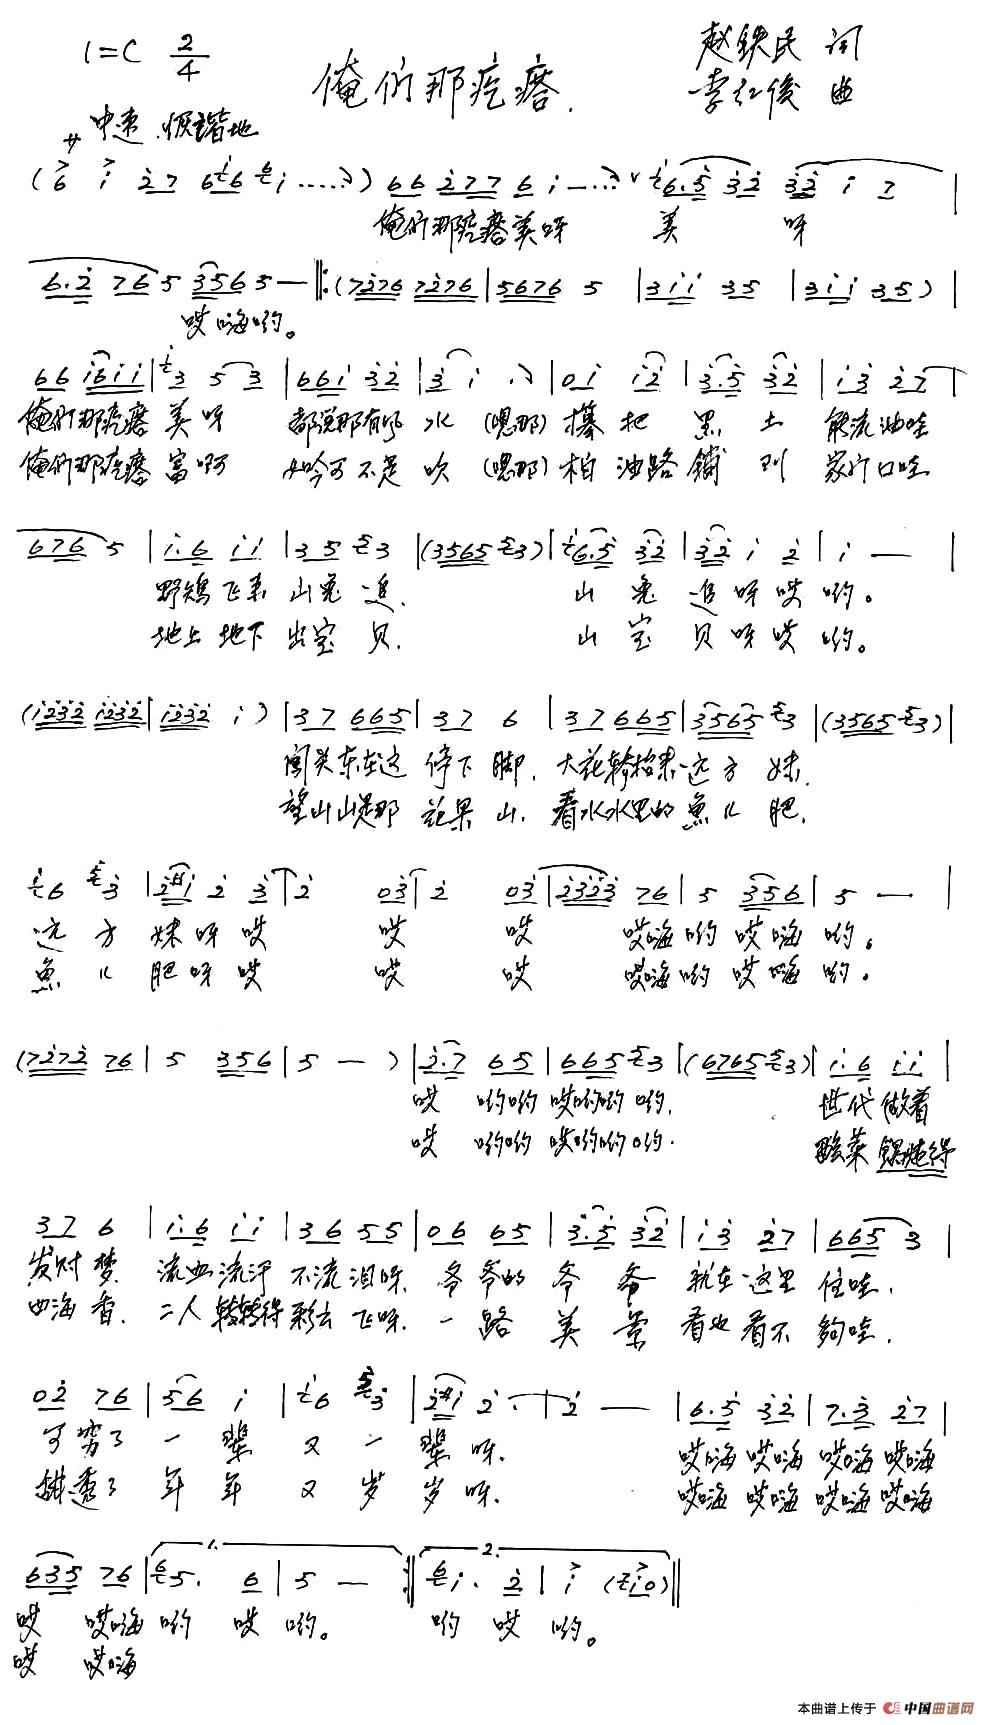 1=C 2/4
俺们那疙瘩
赵铁民 词
李红俊 曲
中速 诙谐地
俺们那疙瘩美呀 美 呀
哎嗨哟。
俺们那疙瘩 美 呀 都说那有风 水 (嗯那) 攥 把 黑 土 能流油哇
俺们那疙瘩 富 啊 如今可不是 吹 (嗯那) 柏 油路 铺 到 家门口哇
野鸡飞来 山兔 追, 山 兔 追 呀 哎 哟。
地上地下 出宝 贝, 山 宝 贝 呀 哎 哟。
闯关东在这 停下 脚, 大花轿抬来 远方 妹,
望山山是那 花果 山, 看水水里的 鱼儿 肥,
远 方 妹 呀 哎 哎 哎 哎嗨哟 哎 嗨 哟。
鱼 儿 肥 呀 哎 哎 哎 哎嗨哟 哎 嗨 哟。
哎 哟哟 哎哟哟 哟, 世代做着
哎 哟哟 哎哟哟 哟, 酸菜
发财 梦, 流血流汗 不流泪呀, 爷爷的 爷 爷 就在 这里 住哇,
四海 香, 二人转转得彩云 飞呀, 一 路 美 景 看也看不 够哇,
可 穷了 一 辈 又 一 辈 呀, 哎嗨 哎嗨 哎嗨 哎嗨
甜透了 年 年 又 岁 岁 呀, 哎嗨 哎嗨 哎嗨 哎嗨
1. 2.
哎 哎嗨 哟 哎 哟。 哟 哎 哟。
哎 哎嗨
本曲谱上传于 中国曲谱网